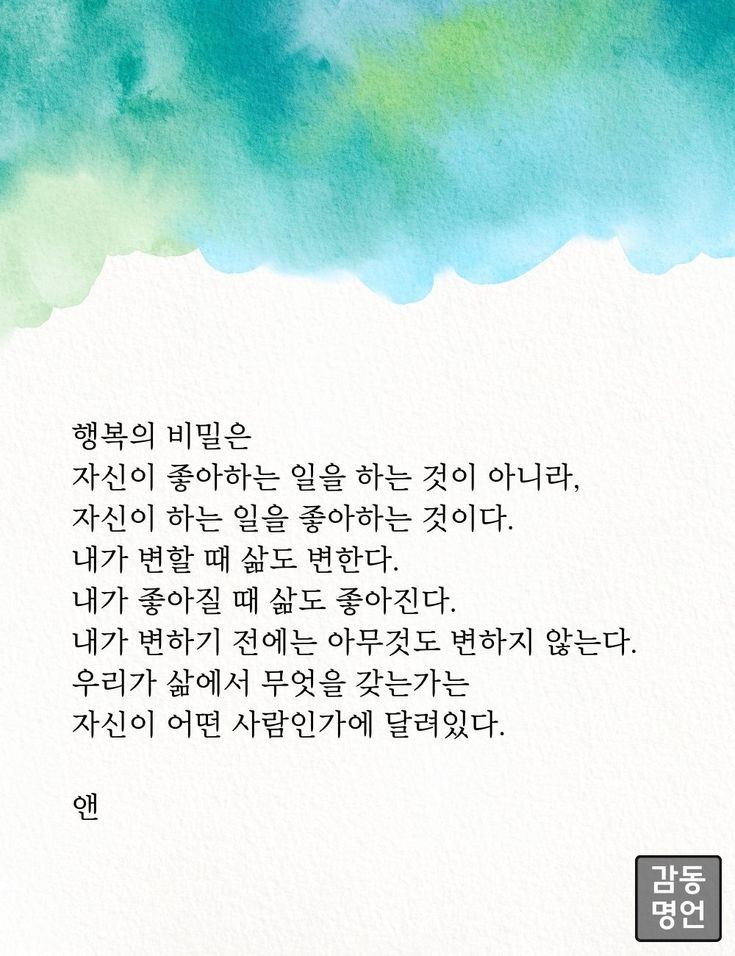 행복의 비밀은
자신이 좋아하는 일을 하는 것이 아니라,
자신이 하는 일을 좋아하는 것이다.
내가 변할 때 삶도 변한다.
내가 좋아질 때 삶도 좋아진다.
내가 변하기 전에는 아무것도 변하지 않는다.
우리가 삶에서 무엇을 갖는가는
자신이 어떤 사람인가에 달려있다.
앤
감동
명언